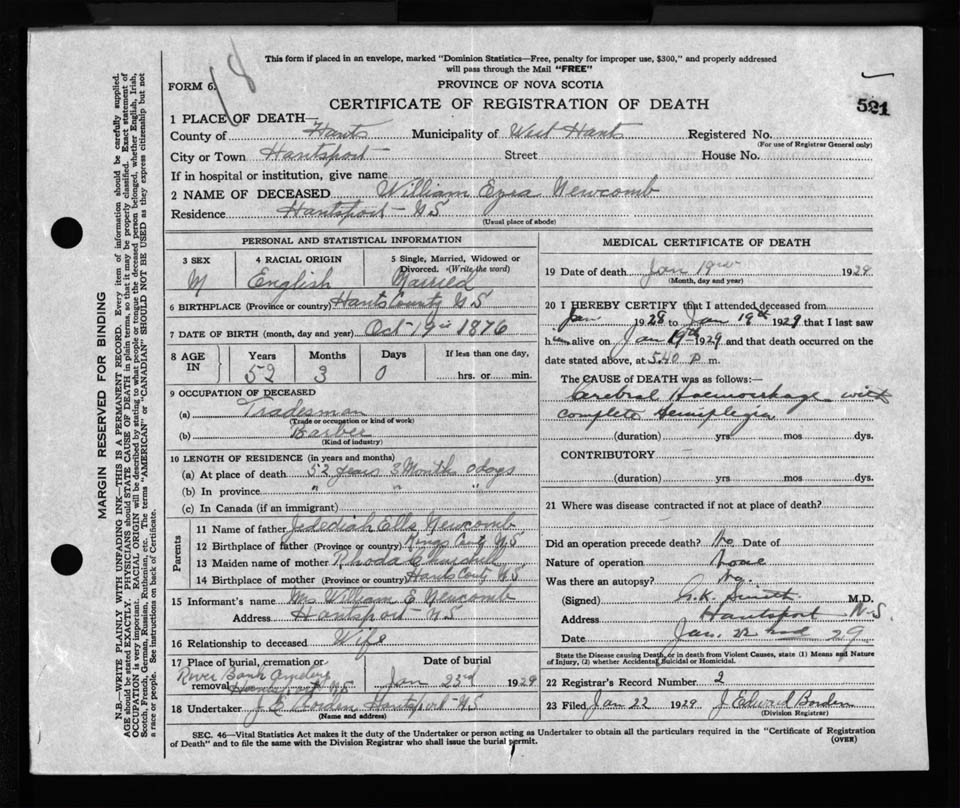 18
This form if placed in an envelope, marked "Dominion Statistics—Free, penalty for improper use, $300," and properly addressed
will pass through the Mail "FREE"
FORM 6. PROVINCE OF NOVA SCOTIA
CERTIFICATE OF REGISTRATION OF DEATH
521
1 PLACE OF DEATH—
County of Hants Municipality of West Hants Registered No.
(For use of Registrar General only)
City or Town Hantsport Street House No.
If in hospital or institution, give name
2 NAME OF DECEASED William Ezra Newcomb
Residence Hantsport - NS
(Usual place of abode)
PERSONAL AND STATISTICAL INFORMATION
3 SEX 4 RACIAL ORIGIN 5 Single, Married, Widowed or
Divorced. (Write the word)
M English Married
6 BIRTHPLACE (Province or country) Hants County NS
7 DATE OF BIRTH (month, day and year) Oct 19 1876
8 AGE IN Years Months Days If less than one day,
52 3 0 hrs. or min.
9 OCCUPATION OF DECEASED
(a) Tradesman
(Trade or occupation or kind of work)
(b) Barber
(Kind of industry)
10 LENGTH OF RESIDENCE (in years and months)
(a) At place of death 52 years 3 Months 0 days
(b) In province " " "
(c) In Canada (if an immigrant)
Parents
11 Name of father Jedediah Ells Newcomb
12 Birthplace of father (Province or country) Kings Conty NS
13 Maiden name of mother Rhoda C
14 Birthplace of mother (Province or country) Hants Conty NS
15 Informant's name Mrs William E Newcomb
Address Hantsport NS
16 Relationship to deceased Wife
17 Place of burial, cremation or Date of burial
River Bank
removal Hantsport NS Jan 23rd 1929
18 Undertaker J E Borden Hantsport NS
(Name and address)
MEDICAL CERTIFICATE OF DEATH
19 Date of death Jan 19 1929
(Month, day and year)
20 I HEREBY CERTIFY that I attended deceased from
Jan 1928 to Jan 19th 1929 that I last saw
him alive on Jan 19th 1929 and that death occurred on the
date stated above, at 5.40 P m.
The CAUSE OF DEATH was as follows:—
Cerebral Haemorrhage with
complete Hemiplegia
(duration) yrs mos dys.
CONTRIBUTORY
(duration) yrs mos dys.
21 Where was disease contracted if not at place of death?
Did an operation precede death? No Date of
Nature of operation None
Was there an autopsy? No.
(Signed) A.K. Smith M.D.
Address Hantsport N-S
Date Jan. 22nd 29
State the Disease causing Death, or in death from Violent Causes, state (1) Means and Nature
of Injury, (2) whether Accidental, Suicidal or Homicidal.
22 Registrar's Record Number 2
23 Filed Jan 22 1929 J Edward Borden
(Division Registrar)
SEC. 46—Vital Statistics Act makes it the duty of the Undertaker or person acting as Undertaker to obtain all the particulars required in the "Certificate of Registration
of Death" and to file the same with the Division Registrar who shall issue the burial permit. (OVER)
MARGIN RESERVED FOR BINDING
N.B.—WRITE PLAINLY WITH UNFADING INK—THIS IS A PERMANENT RECORD. Every item of information should be carefully supplied.
AGE should be stated EXACTLY. PHYSICIANS should STATE CAUSE OF DEATH in plain terms, so that it may be properly classified. Exact statement of
OCCUPATION is very important. RACIAL ORIGIN will be described by stating to what people or tongue the deceased person belonged, whether English, Irish,
Scotch, French, German, Russian, Ruthenian, etc. The terms "AMERICAN" or "CANADIAN" SHOULD NOT BE USED as they express citizenship but not
a race or people. See instructions on back of Certificate.